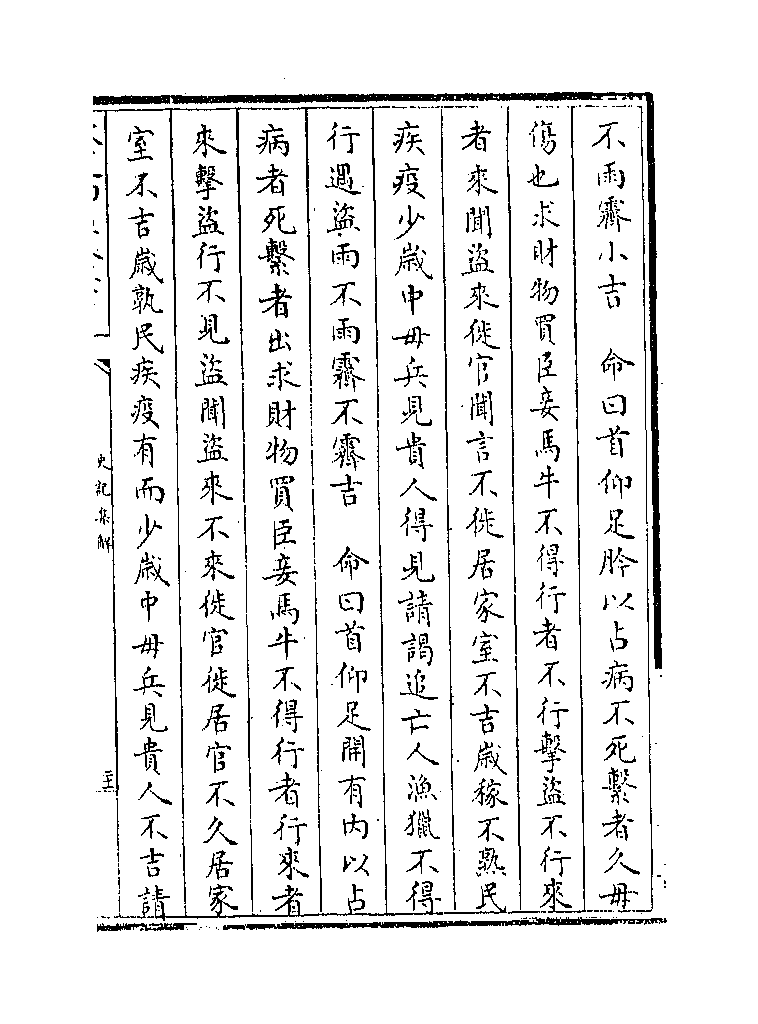 不雨霽小吉　命曰首仰足肣以占病不死繫者久毋
傷也求財物買臣妾馬牛不得行者不行擊盜不行來
者來聞盜來徙官聞言不徙居家室不吉歲稼不熟民
疾疫少歲中毋兵見貴人得見請謁追亡人漁獵不得
行遇盜雨不雨霽不霽吉　命曰首仰足開有內以占
病者死繫者出求財物買臣妾馬牛不得行者行來者
來擊盜行不見盜聞盜來不來徙官徙居官不久居家
室不吉歲孰民疾疫有而少歲中毋兵見貴人不吉請
史記集解